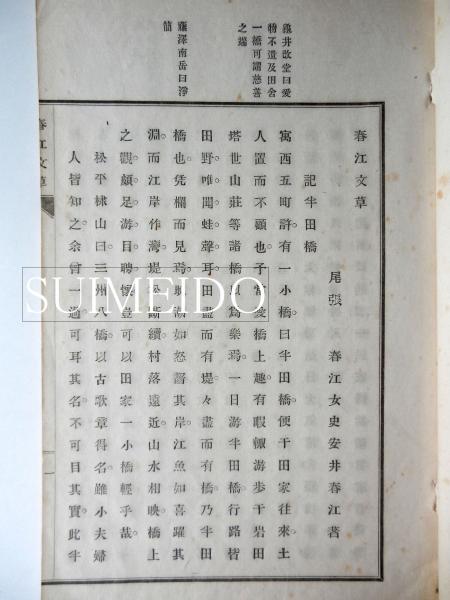 春江文草
尾張 春江女史安井春江著
記半田橋
寓西五町許有一小橋曰半田橋便于田家往來土
人置而不顧也予嘗愛橋上趣有暇輙游步于岩田
塔世山莊等諸橋以為樂焉一日游半田橋行路皆
田野唯聞蛙聲耳田盡而有堤々盡而有橋乃半田
橋也凭欄而見焉晩潮如怒齧其岸江魚如喜躍其
淵而江岸作灣堤松斷續村落遠近山水相映橋上
之觀頗足游目聘懷豈可以田家一小橋輕乎哉
松平楙山曰三州八橋以古歌章得名雖小夫婦
人皆知之余曾一過可耳其名不可目其實此半
龜井改堂曰愛
物不遺及田舍
一橋可謂慈善
之端
藤澤南岳曰淨
簡
春江文草
SUIMEIDO